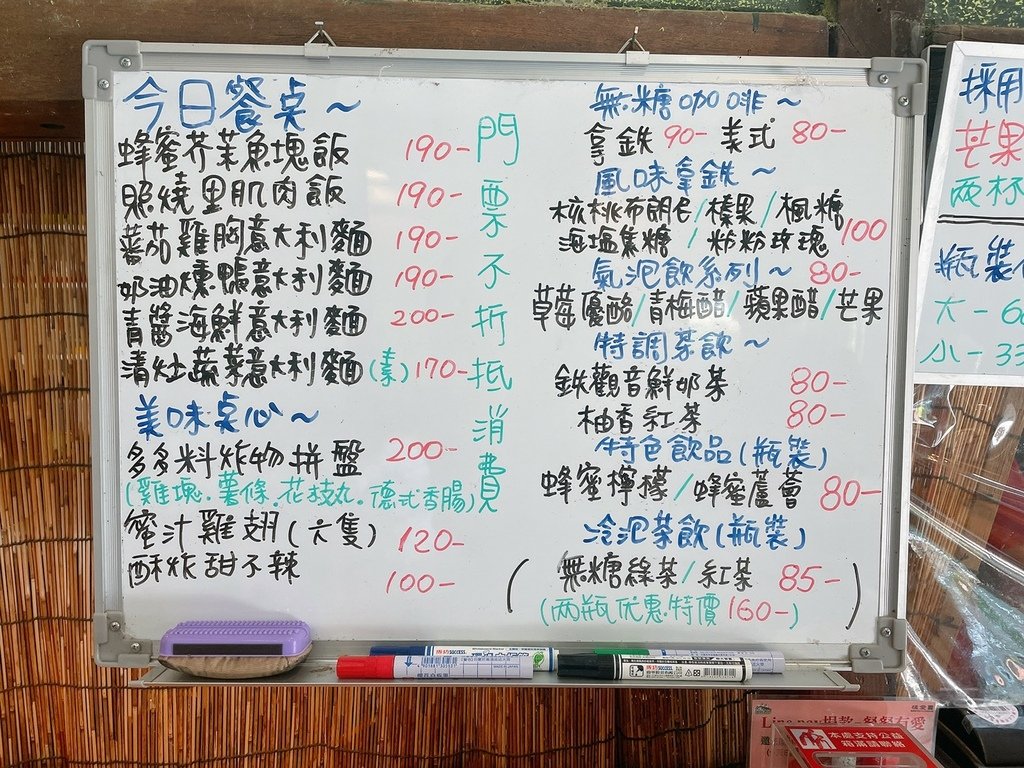 今日餐桌~
蜂蜜芥茉魚塊飯 190-
照燒里肌肉飯 190-
蕃茄雞胸意大利麵 190-
奶油燻鴨意大利麵 190-
青醬海鮮意大利麵 200-
清灶蔬菜意大利麵(素)170-
美味桌心~
多多料炸物拼盤 200-
(雞塊.薯條.花枝丸.德式香腸)
蜜汁雞翅(六隻) 120-
酥炸甜不辣 100-
門票不折抵消費
無糖咖啡~
拿鉄 90- 美式 80-
風味拿鉄~
核桃布朗尼/榛果/楓糖
海塩焦糖/粉粉玫瑰 100
氣泡飲系列~ 80-
草莓優酪/青梅醋/蘋果醋/芒果
特調茶飲~
鉄觀音鮮奶茶 80-
柚香紅茶 80-
特色飲品(瓶裝)
蜂蜜檸檬/蜂蜜蘆薈 80-
冷泡茶飲(瓶裝)
(無糖綠茶/紅茶 85-)
(两瓶优惠特價160-)
採用
芒果
两杯
瓶裝
大-6
小-33
本處支持公益
箱滿請聯絡